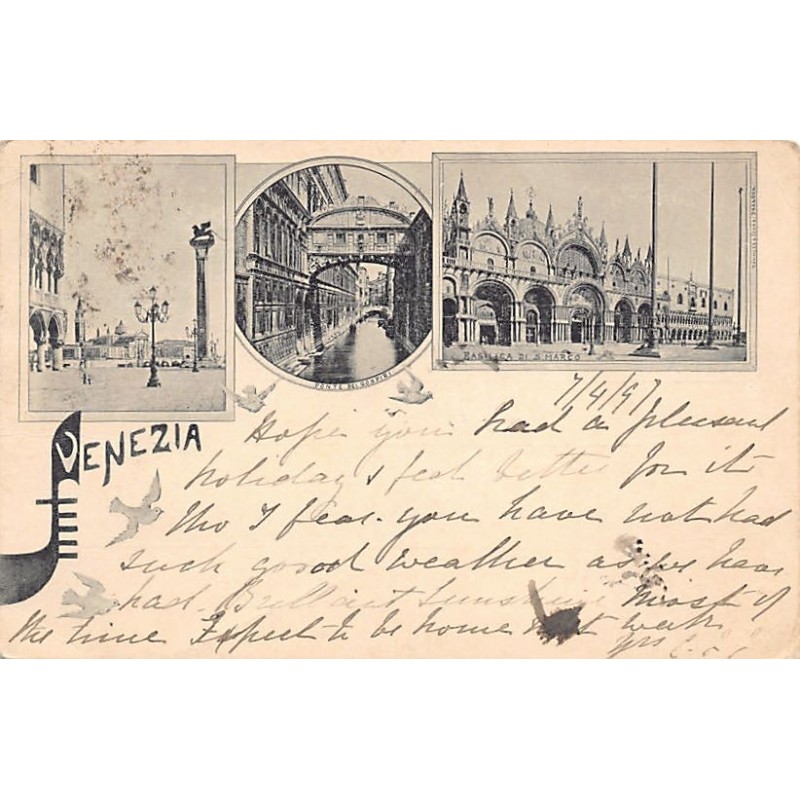 PONTE DEI SOSPIRI
BASILICA DI S. MARCO
VENEZIA
7/4/97
Hope you had a pleasant
holiday & feel better for it
Tho I fear you have not had
such good weather as we have
had. Brilliant sunshine most of
the time Expect to be home next week
Yrs